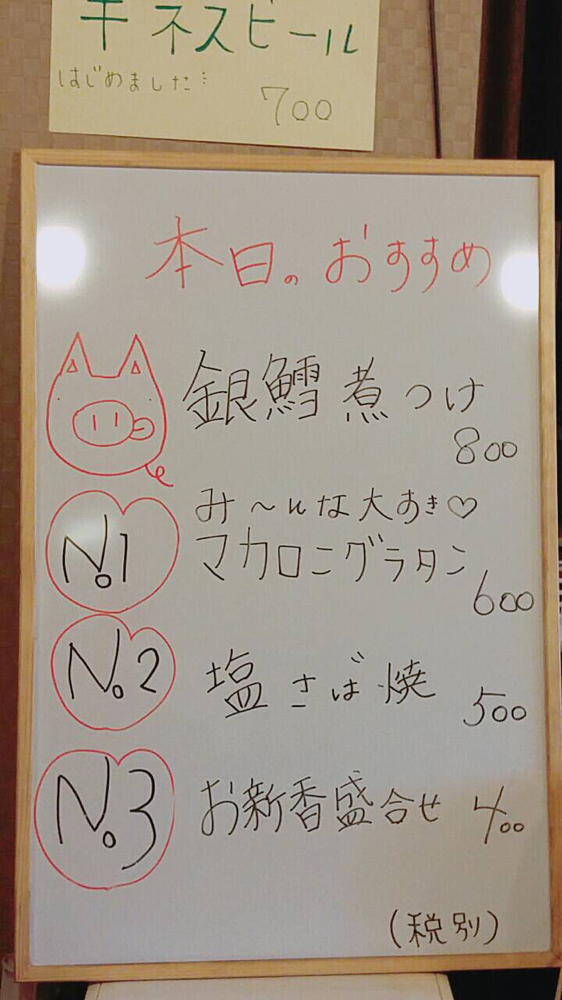 ギネスビール
はじめました…
700
本日のおすすめ
銀鱈煮つけ
800
み〜んな大すき♡
No.1 マカロニグラタン
600
No.2 塩さば焼 500
No.3 お新香盛合せ 400
(税別)